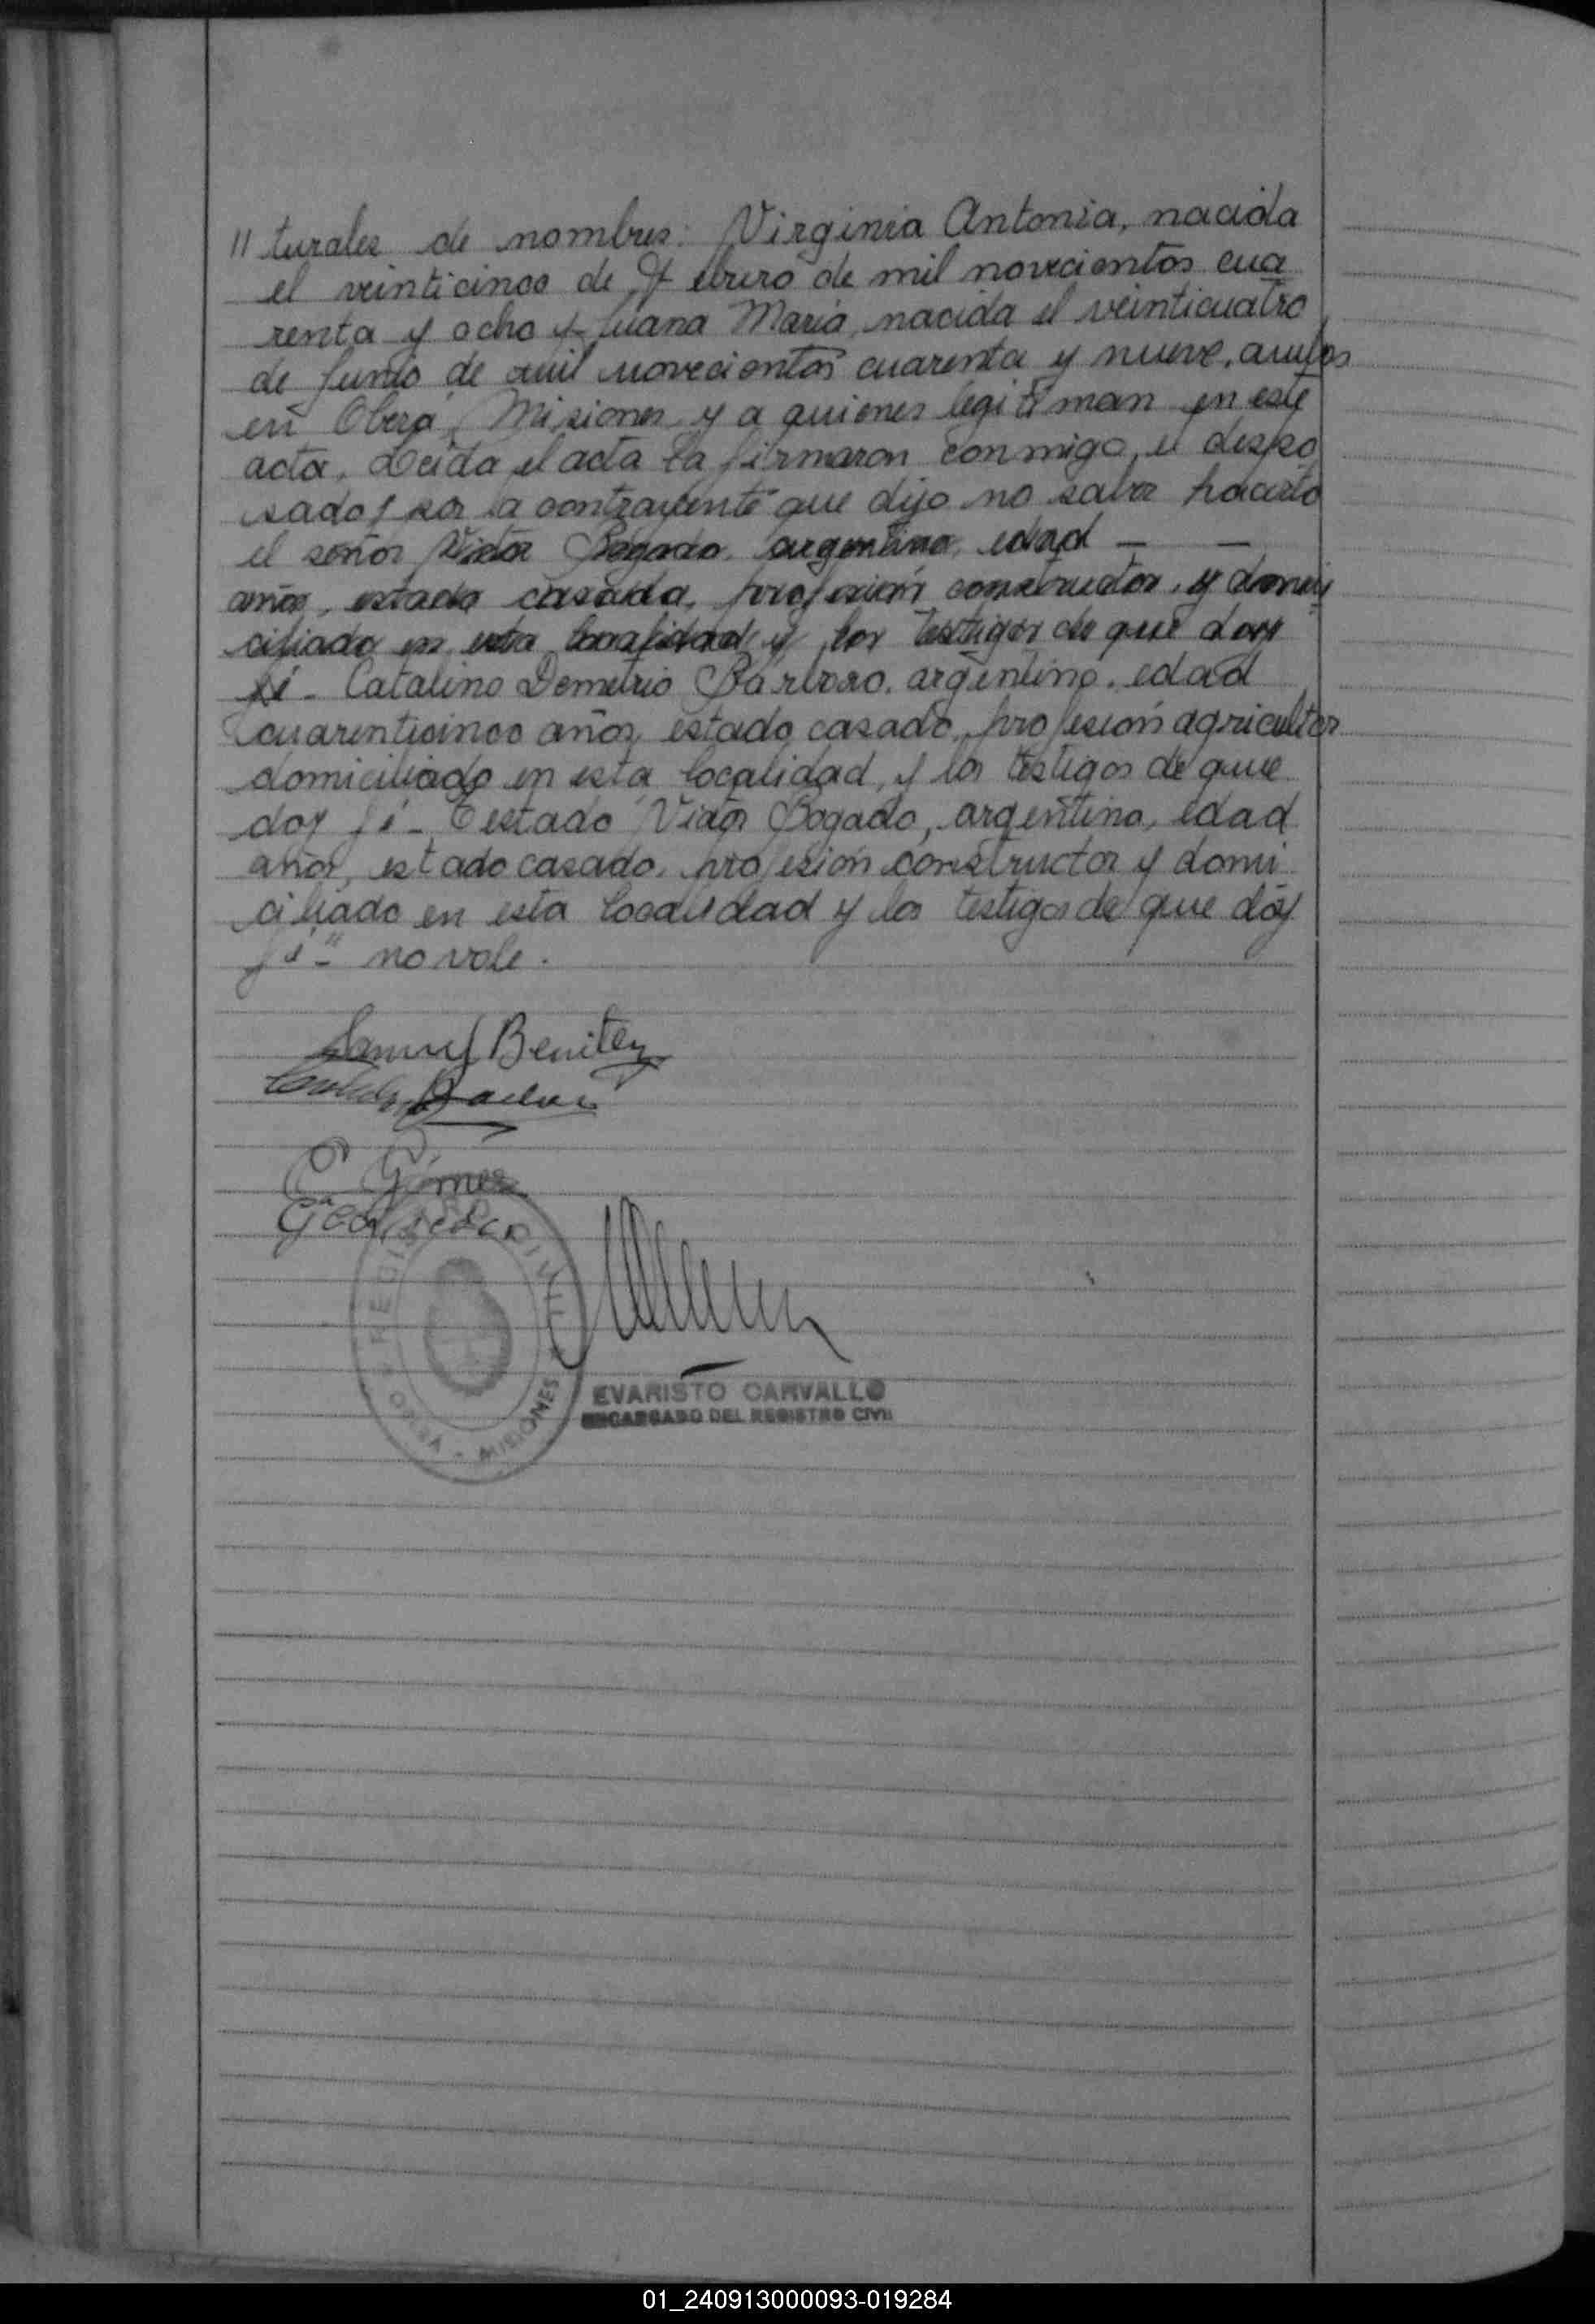 // turales de nombres: Virginia Antonia, nacida
el veinticinco de Febrero de mil novecientos cua
renta y ocho y Juana Maria, nacida el veinticuatro
de Junio de mil novecientos cuarenta y nueve, ambos
en Oberá, Misiones y a quienes legitiman en este
acta. Leida el acta la firmaron conmigo, el despo
sado y por la contrayente que dijo no saber hacerlo
el señor Victor Bogado, argentino, edad — —
años, estado casado, profesión constructor, y domi
ciliado en esta localidad y los testigos de que doy
fé - Catalino Demetrio Bárbaro, argentino, edad
cuarenticinco años, estado casado, profesión agricultor
domiciliado en esta localidad, y los testigos de que
doy fé - Testado "Victor Bogado, argentino, edad
años, estado casado, profesión constructor y domi
ciliado en esta localidad y los testigos de que doy
fé" - no vale.
Samuel Benitez
Gómez
REGISTRO CIVIL
OBERA - MISIONES
EVARISTO CARVALLO
ENCARGADO DEL REGISTRO CIVIL
01_240913000093-019284